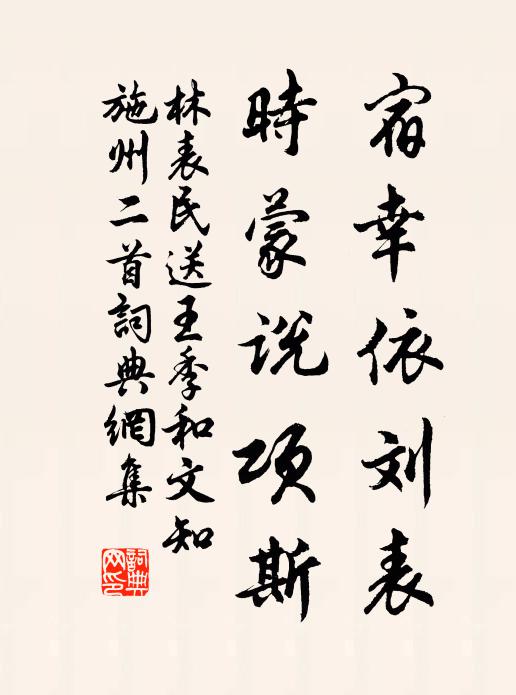 宿幸依刘表
時蒙説項斯
林表民送王季和文知
施州二首詞典網集
詞典網印